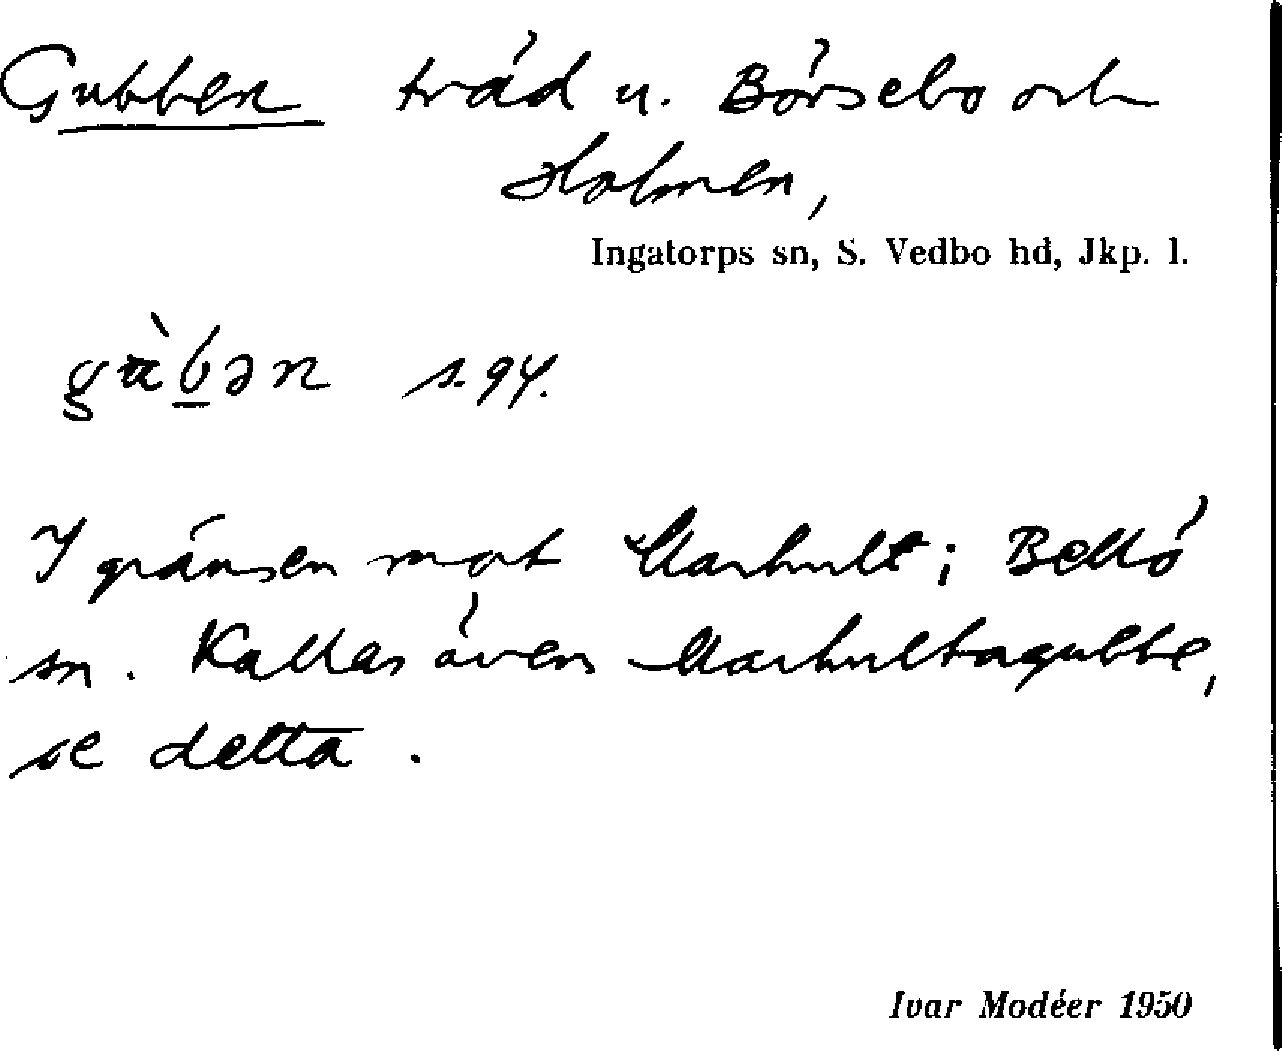 Gubben träd u. Börsebo och
Holmen,
Ingatorps sn, S. Vedbo hd, Jkp. l.
s. 94.
I gränsen mot Markult i Bellö
sn. Kallas även Markultagubbe,
se detta.
Ivar Modéer 1950